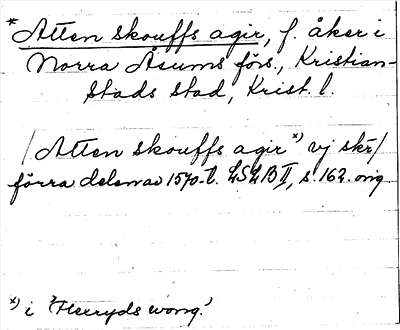 *Atten skouffs agir, f. åker i
Norra Åsums förs., Kristian-
stads stad, Krist. l.
/Atten skouffs agir *) vj skr/
förra delen av 1570-t. LSLB II, s. 162. orig
*) i "Heeryds wong."